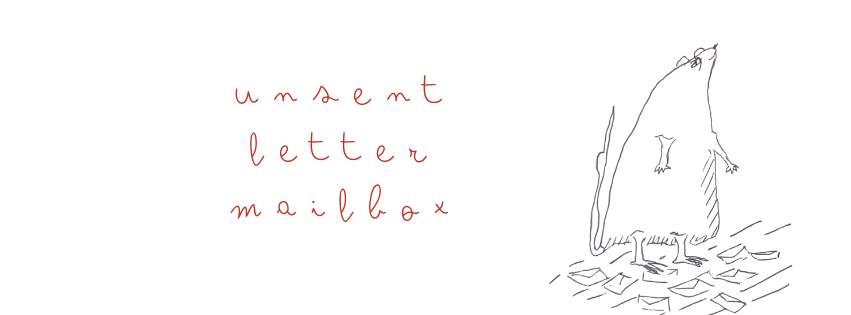 unsent
letter
mailbox